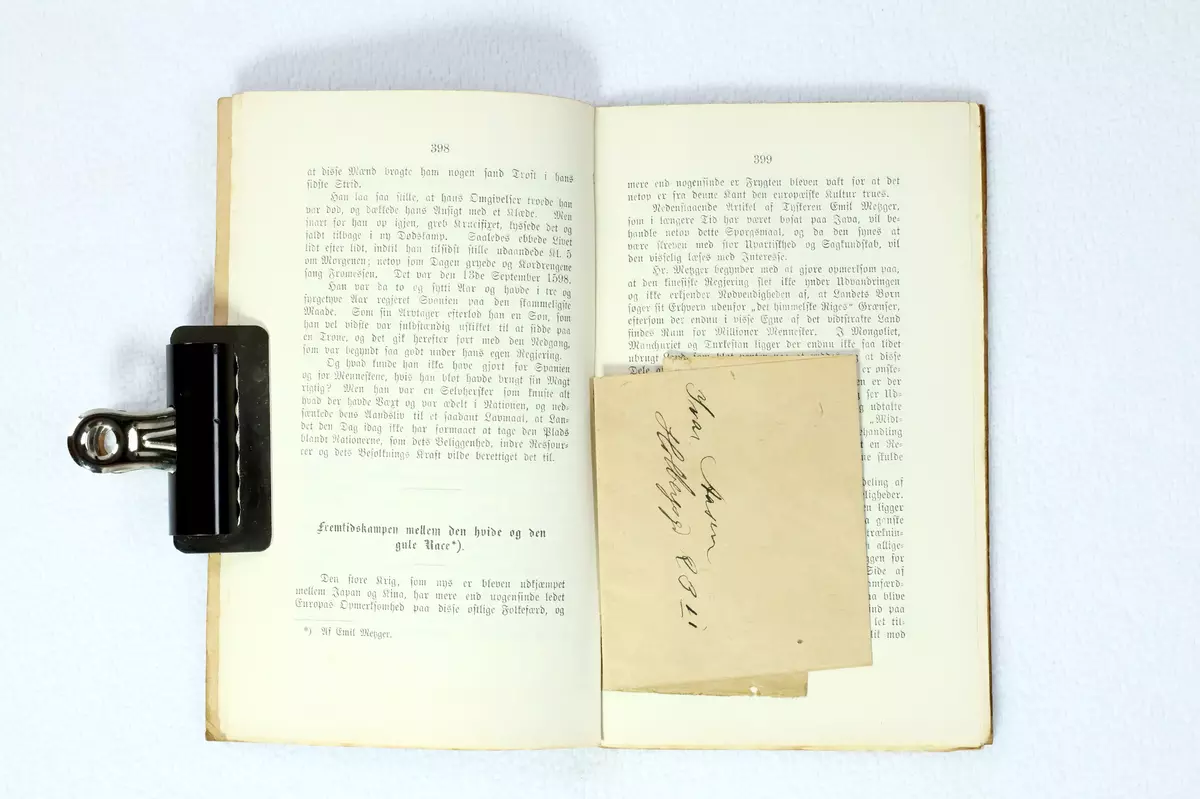 398
at disse Mænd bragte ham nogen sand Trøst i hans
sidste Strid.
Han laa saa stille, at hans Omgivelser troede han
var død, og dækkede hans Ansigt med et Klæde. Men
snart for han op igjen, greb Krucifixet, kyssede det og
faldt tilbage i ny Dødskamp. Saaledes ebbede Livet
lidt efter lidt, indtil han tilsidst stille udaandede Kl. 5
om Morgenen; netop som Dagen gryede og Kordrengene
sang Fromessen. Det var den 13de September 1598.
Han var da to og sytti Aar og havde i tre og
fyrgetyve Aar regjeret Spanien paa den skammeligste
Maade. Som sin Arvtager efterlod han en Søn, som
han vel vidste var fuldstændig uskikket til at sidde paa
en Trone, og det gik herefter fort med den Nedgang,
som var begyndt saa godt under hans egen Regjering.
Og hvad kunde han ikke have gjort for Spanien
og for Menneskene, hvis han blot havde brugt sin Magt
rigtig? Men han var en Selvhersker som knuste alt
hvad der havde Væxt og var ædelt i Nationen, og ned-
sænkede dens Aandsliv til et saadant Lavmaal, at Lan-
det den Dag idag ikke har formaaet at tage den Plads
blandt Nationerne, som dets Beliggenhed, indre Ressour-
cer og dets Befolknings Kraft vilde berettiget det til.
Fremtidskampen mellem den hvide og den
gule Race*).
Den store Krig, som nys er bleven udkjæmpet
mellem Japan og Kina, har mere end nogensinde ledet
Europas Opmerksomhed paa disse østlige Folkefærd, og
*) Af Emil Metzger.
399
mere end nogensinde er Frygten bleven vakt for at det
netop er fra denne Kant den europæiske Kultur trues.
Nedenstaaende Artikel af Tyskeren Emil Metzger,
som i længere Tid har været bosat paa Java, vil be-
handle netop dette Spørgsmaal, og da den synes at
være skreven med stor Upartiskhed og Sagkundskab, vil
den visselig læses med Interesse.
Hr. Metzger begynder med at gjøre opmerksom paa,
at den kinesiske Regjering slet ikke ynder Udvandringen
og ikke erkjender Nødvendigheden af, at Landets Børn
søger sit Erhverv udenfor „det himmelske Riges“ Grænser,
eftersom der endnu i visse Egne af det vidtstrakte Land
findes Rum for Millioner Mennesker. I Mongoliet,
Manchuriet og Turkestan ligger der endnu ikke saa lidet
ubrugt at disse
Dele
er ønske-
en er der
Ud-
udtalte
„Midt-
handling
en Ne-
skulde
deling af
ligheder.
ligger
ganske
træknin-
allige-
gen for
Side af
amfærd-
blive
ind paa
let til-
mod
Ivar Aasen
Holbergsgd 23 ii